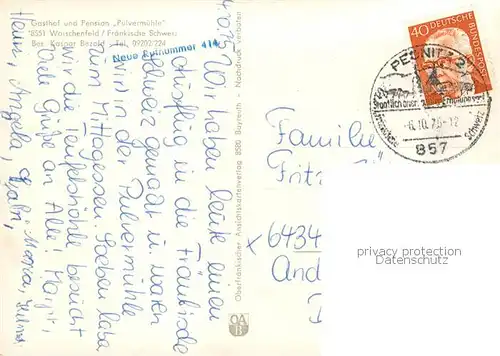 Gasthof und Pension „Pulvermühle"
8551 Waischenfeld / Fränkische Schweiz
Bes. Kaspar Bezold · Tel. 09202/224
Neue Rufnummer 414
4.10.75 Wir haben heute einen
Ausflug in die Fränkische
Schweiz gemacht u. waren
wir in der Pulvermühle
zum Mittagessen. Soeben habe
wir die Teufelshöhle besucht
Viele Grüße an Alle! Margit,
Heinz, Angela,
Oberfränkischer Ansichtskartenverlag 8580 Bayreuth · Nachdruck verboten
OAB
40
DEUTSCHE BUNDESPOST
PEGNITZ 2
Staatlich aner
-6.10.75-12
Schweiz
857
Familie
Fritz
6434
privacy protection
Datenschutz